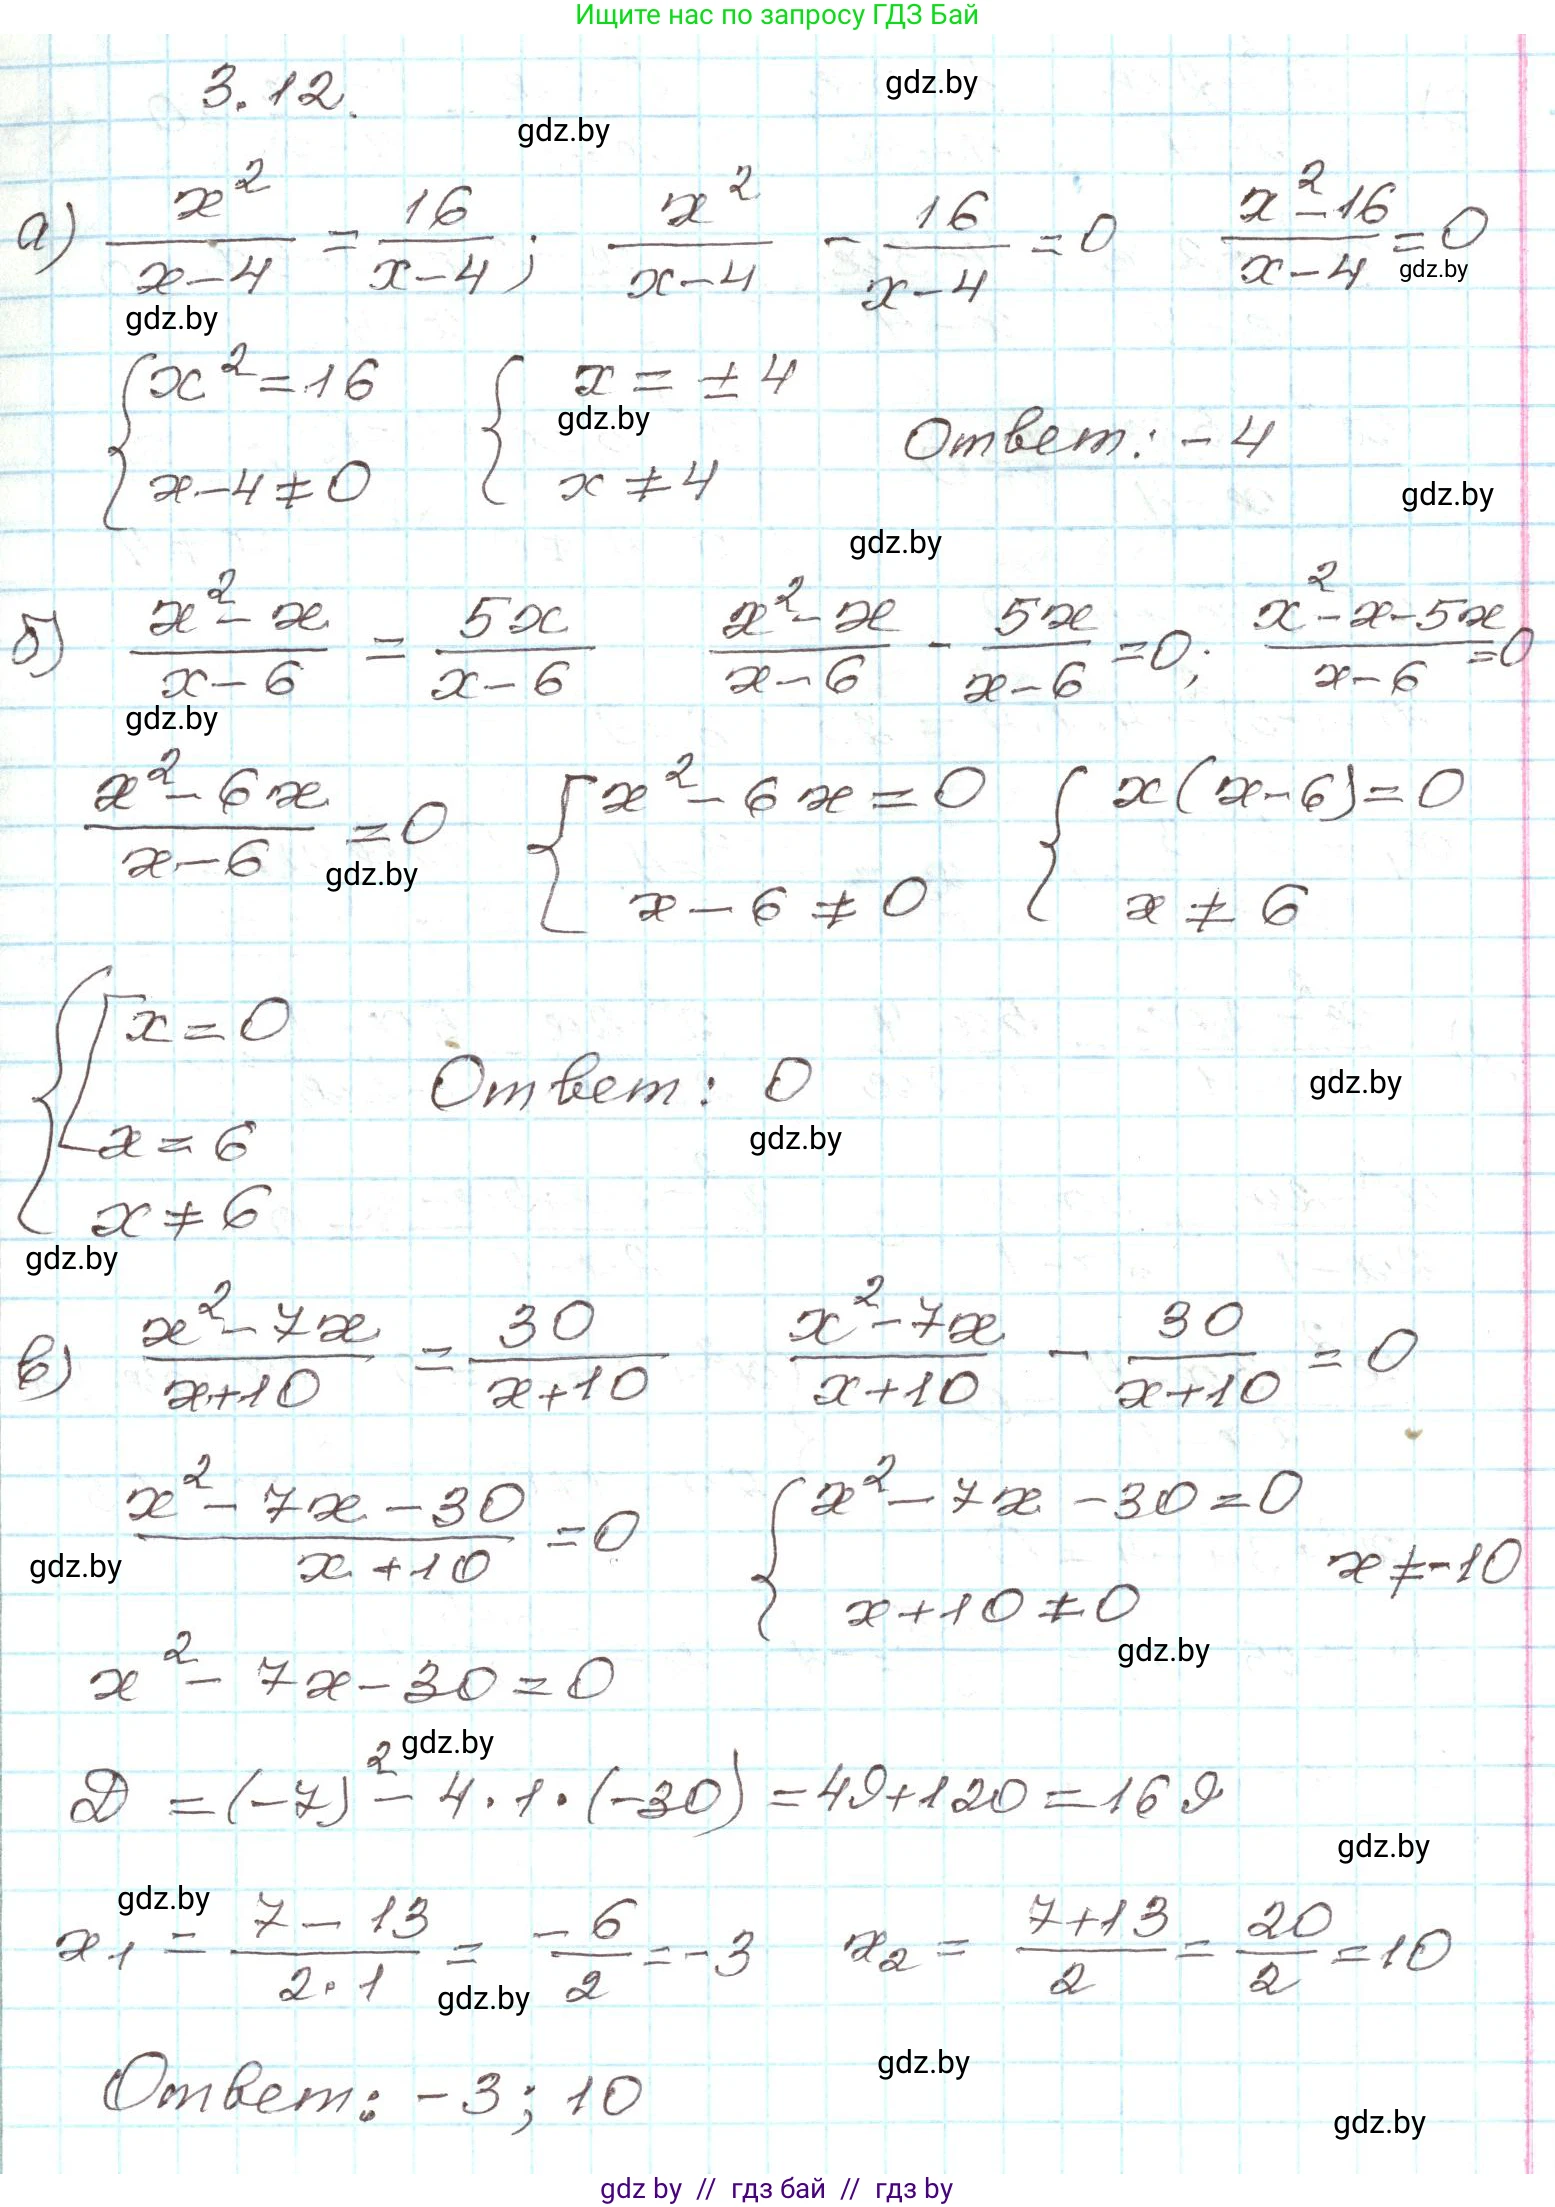 Ищите нас по запросу ГДЗ Бай
3.12.
gdz.by
gdz.by
а) x²/(x-4) = 16/(x-4); x²/(x-4) - 16/(x-4) = 0 (x²-16)/(x-4) = 0
gdz.by
gdz.by
{ x² = 16 { x = ±4
gdz.by
Ответ: -4
x-4 ≠ 0 x ≠ 4
gdz.by
gdz.by
б) (x²-x)/(x-6) = 5x/(x-6) (x²-x)/(x-6) - 5x/(x-6) = 0; (x²-x-5x)/(x-6) = 0
gdz.by
(x²-6x)/(x-6) = 0 { x²-6x = 0 { x(x-6) = 0
gdz.by
x-6 ≠ 0 x ≠ 6
{ [ x = 0
Ответ: 0
gdz.by
gdz.by
x = 6
x ≠ 6
gdz.by
в) (x²-7x)/(x+10) = 30/(x+10) (x²-7x)/(x+10) - 30/(x+10) = 0
(x²-7x-30)/(x+10) = 0 { x²-7x-30 = 0
gdz.by
x+10 ≠ 0 x ≠ -10
gdz.by
x²-7x-30 = 0
gdz.by
D = (-7)²-4·1·(-30) = 49+120 = 169
gdz.by
gdz.by
x₁ = (7-13)/(2·1) = -6/2 = -3 x₂ = (7+13)/2 = 20/2 = 10
gdz.by
gdz.by
Ответ: -3; 10
gdz.by
gdz.by // гдз бай // гдз by